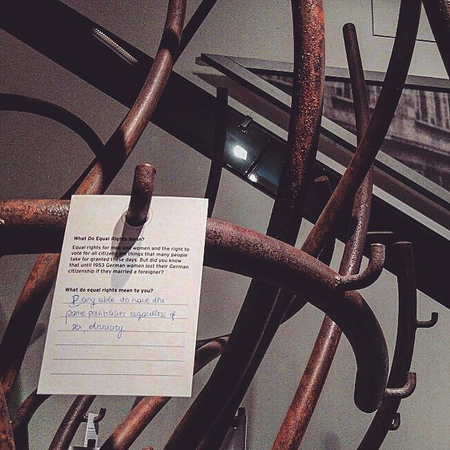 What Do Equal Rights Mean?
Equal rights for men and women and the right to
vote for all citizens are things that many people
take for granted these days. But did you know
that until 1953 German women lost their German
citizenship if they married a foreigner?
What do equal rights mean to you?
Being able to have the
same possibilities regardless of
sex, ethnicity